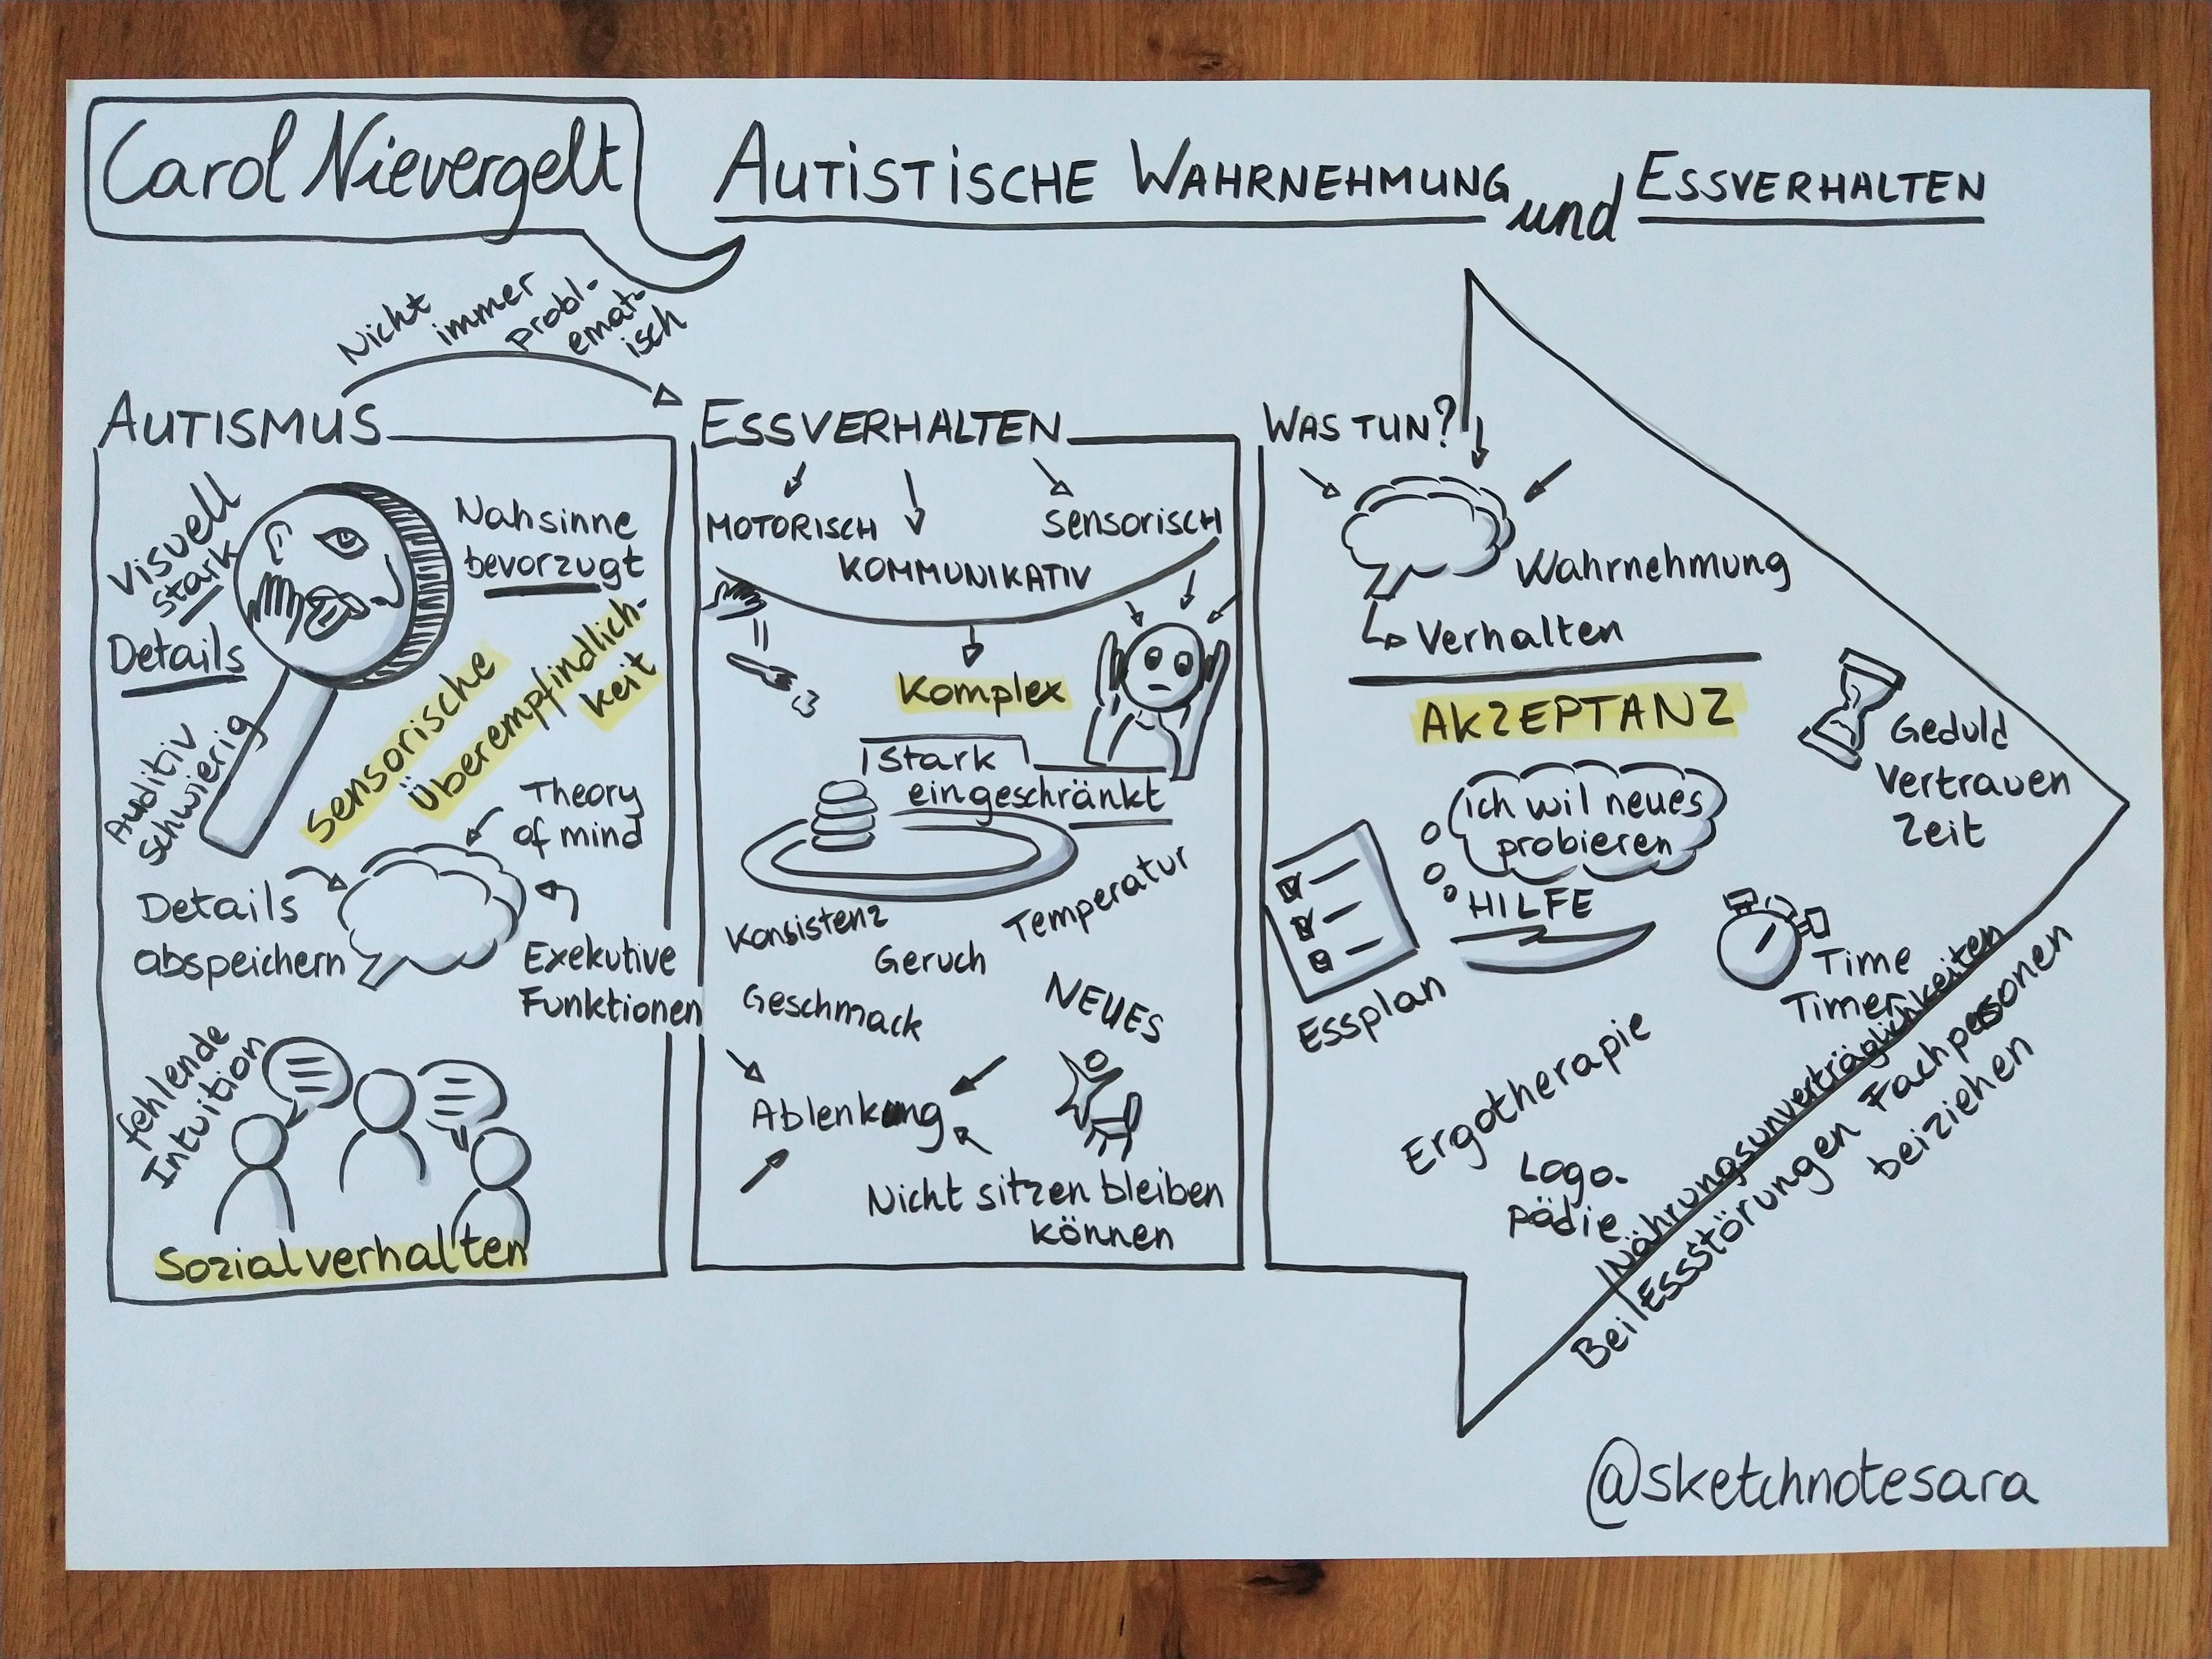 Carol Nievergelt
AUTISTISCHE WAHRNEHMUNG und ESSVERHALTEN
Nicht immer probl-
emat-
isch
AUTISMUS
Visuell
stark
Details
Nahsinne
bevorzugt
Auditiv
schwierig
sensorische
Überempfindlich-
keit
Theory
of mind
Details
abspeichern
Exekutive
Funktionen
fehlende
Intuition
Sozialverhalten
ESSVERHALTEN
MOTORISCH
KOMMUNIKATIV
sensorisch
Komplex
stark
eingeschränkt
Konsistenz
Temperatur
Geruch
Geschmack
NEUES
Ablenkung
Nicht sitzen bleiben
können
WAS TUN?
Wahrnehmung
Verhalten
AKZEPTANZ
Geduld
Vertrauen
Zeit
ich wil neues
probieren
HILFE
Essplan
Time
Timer
Ergotherapie
Logo-
pädie
Nährungsunverträglichkeiten
Bei Essstörungen Fachpersonen
beiziehen
@sketchnotesara